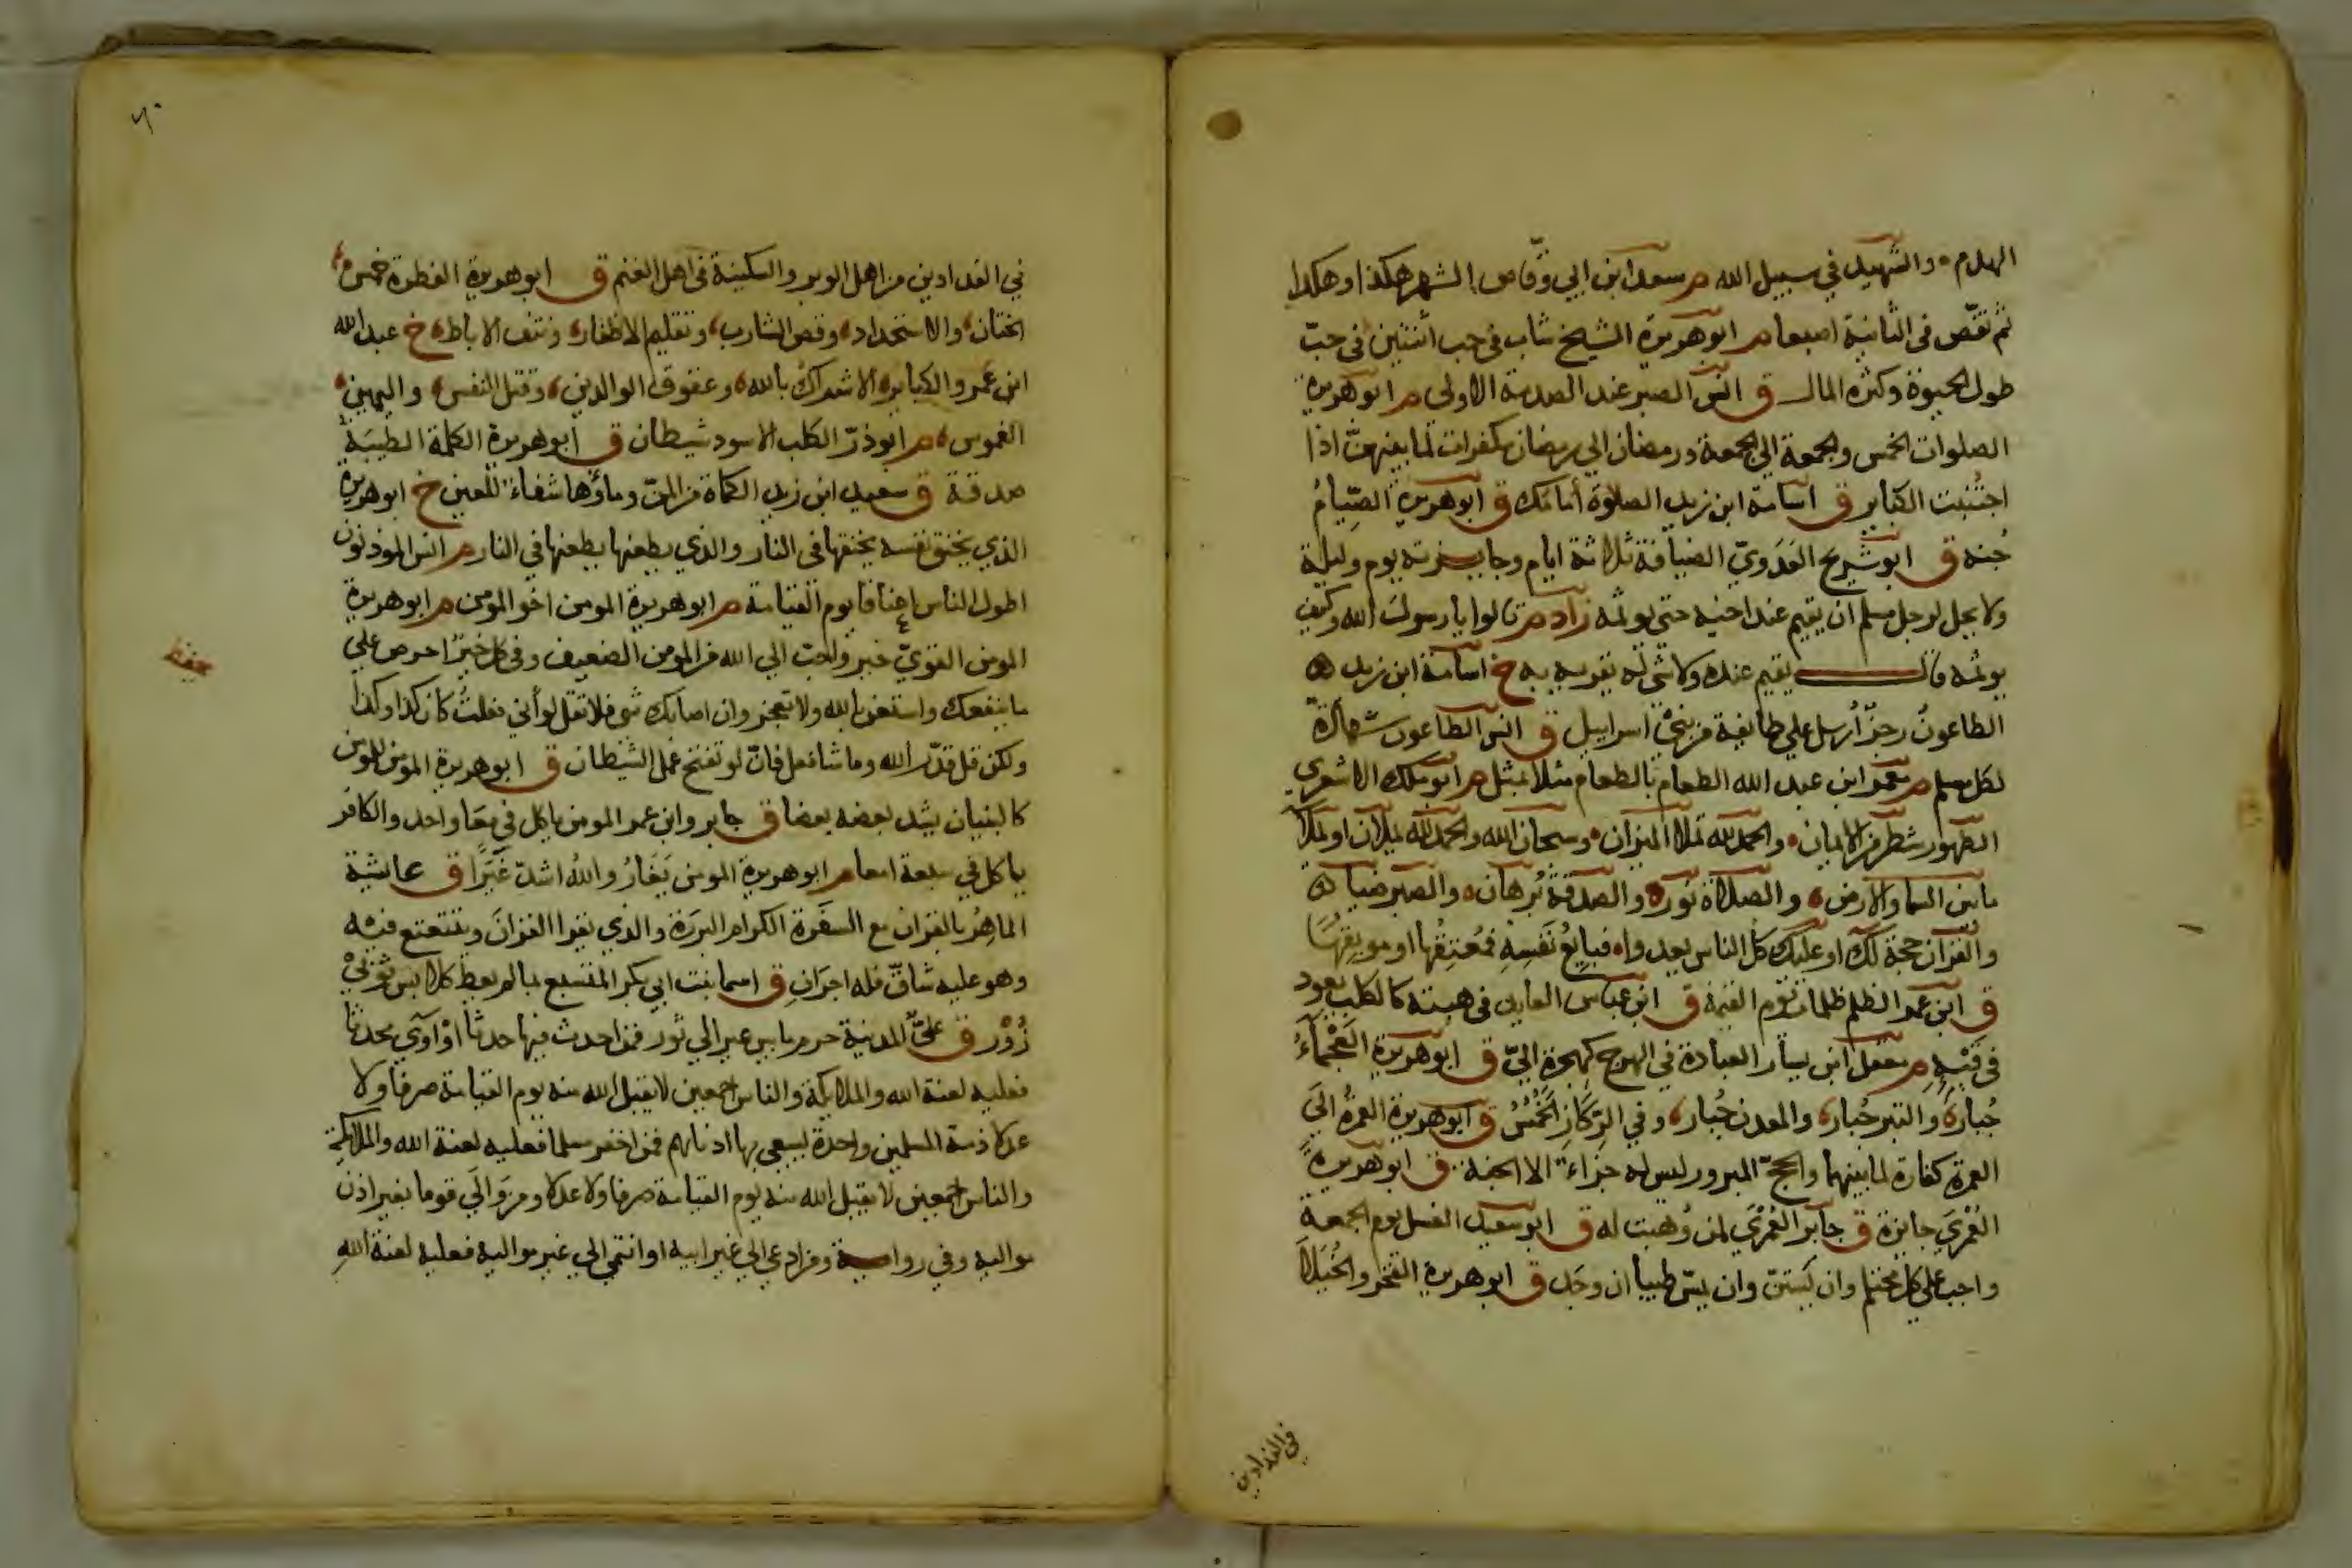 الهدم والشهيد في سبيل الله م سعد ابن ابي وقّاص الشهر هكذا وهكذا
ثم نقص في الثانية اصبعا م ابو هريرة الشيخ شاب في حب اثنتين في حبّ
طول الحيوة وكثرة المال ق انس الصبر عند الصدمة الاولى م ابو هريرة
الصلوات الخمس والجمعة الي الجمعة ورمضان الي رمضان مكفرات لما بينهنّ اذا
اجتُنبت الكباير ق اسامة ابن زيد الصلوة أمامك ق ابو هريرة الصِّيامُ
جُنة ق ابو شريح العَدَويّ الضيافة ثلاثة ايام وجايزته يوم وليلة
ولا يحل لرجل مسلم ان يقيم عند اخيه حتى يوثمه زاد م قالوا يا رسول الله وكيف
يوثمه قال يقيم عنده ولا شي له يقريه به خ اسامة ابن زيد
الطاعون رجزٌ أرسل علي طايفة من بني اسراييل ق انس الطاعون شهادة
لكل مسلم م معمر ابن عبد الله الطعام بالطعام مثلا بمثل م ابو ملك الاشعري
الطهور شطر الايمان والحمد لله تملا الميزان وسبحان الله والحمد لله تملان او تملا
ما بين السما والارض والصلاة نور والصدقة بُرهان والصبر ضيا
والقران حجة لك او عليك كل الناس يغدوا فبايعُ نَفسِهِ فمُعتِقُها او موبِقُها
ق ابن عمر الظلم ظلمات يوم القيمة ق ابن عباس العايد في هبته كالكلب يعود
في قَيْئِهِ م معقل ابن يسار العبادة في الهرج كهجرة اليّ ق ابو هريرة العَجْمَاءُ
جُبار والبير جُبار والمعدن جُبار وفي الرِّكَازِ الخُمُسُ ق ابو هريرة العمرة الى
العمرة كفارة لما بينهما والحجّ المبرور ليس له جزاء الا الجنة ق ابو هريرة
العُمْرَي جايزة ق جابر العُمْرَي لمن وُهبت له ق ابو سعيد الغسل يوم الجمعة
واجب علي كل محتلم وان يَستنّ وان يمسّ طيبا ان وجد ق ابو هريرة الفخر والخُيَلا
في الفدادين
٦٠
في الفدادين من اهل الوبر والسكينة في اهل الغنم ق ابو هريرة الفطرة خمس
الختان والاستحداد وقص الشارب وتقليم الاظفار ونتف الاباط خ عبد الله
ابن عمرو الكباير الاشراكُ بالله وعقوق الوالدين وقتل النفس واليمين
الغموس م ابو ذرّ الكلب الاسود شيطان ق ابو هريرة الكلمة الطيبَة
صدقة ق سعيد ابن زيد الكماة من المنّ وماؤها شفاء للعين خ ابو هريرة
الذي يخنق نفسه يخنقها في النار والذي يطعنها يطعنها في النار م انس الموذنون
اطول الناس اعناقا يوم القيامة م ابو هريرة المومن اخو المؤمن م ابو هريرة
المومن القويّ خير واحبّ الي الله من المومن الضعيف وفي كل خيرٌ احرص علي
ما ينفعك واستعن بالله ولا تعجز وان اصابك شي فلا تقل لو أني فعلتُ كان كذا وكذا
ولكن قل قدّر الله وما شا فعل فانّ لو تفتح عمل الشيطان ق ابو هريرة المؤمن للمومن
كالبنيان يشد بعضه بعضا ق جابر وابن عمر المومن ياكل في مِعًا واحد والكافر
ياكل في سبعة امعا م ابو هريرة المومن يَغَارُ والله اشدّ غَيْرًا ق عايشة
الماهِرُ بالقران مع السفَرة الكرام البررَة والذي يقرا القرانَ ويتتعتع فيه
وهو عليه شاقّ فله اجرَانِ ق اسما بنت ابي بكر المتشبع بما لم يعط كلابس ثَوْبَيْ
زُوْر ق عليٌّ المدينة حرم ما بين عير الي ثور فمن احدث فيها حدثا اوْ آوي محدثا
فعليه لعنة الله والملايكة والناس اجمعين لا يقبل الله منه يوم القيامة صرفا ولا
عدلا ذمة المسلمين واحدة يسعي بها ادناهم فمن اخفر مسلما فعليه لعنة الله والملايكةِ
والناس اجمعين لا يقبل الله منه يوم القيامة صرفا ولا عدلا ومن وَالَي قوما بغير اذن
مواليه وفي رواية ومن ادعي الي غير ابيه او انتمي الي غير مواليه فعليه لعنة اللهِ